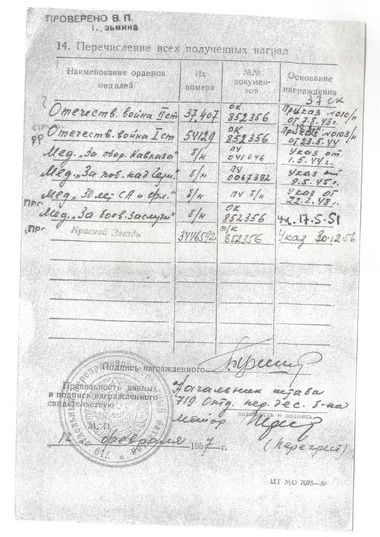 ПРОВЕРЕНО В. П.
14. Перечисление всех полученных наград
Наименование орденов медалей | Их номера | №№ документов | Основание награждения
37 СК
Отечеств. война II ст | 37.407 | ОК 852356 | Приказ 1010/н от 7.8.43 г.
Отечеств. война I ст | 54129 | ОК 852356 | Приказ от 23.5.44
Мед. "За обор. Кавказа" | б/н | ПУ 041046 | Указ от 1.5.44 г.
Мед. "За поб. над Герм." | б/н | ПУ 0067382 | Указ от 9.5.45 г.
Мед. "30 лет СА и Фл." | б/н | ПУ б/н | Указ от 22.2.48 г.
Мед. "За боев. заслуги" | б/н | ОК 852356 | 17.5.51
Красной Звезды | 3446592 | о/к 852356 | Указ 30.12.56
Подпись награжденного
Правильность данных
и подписи награжденного
свидетельствую
Начальник штаба
719 Отд. пер. дес. б-на
М. П.
майор
февраля 1957 г